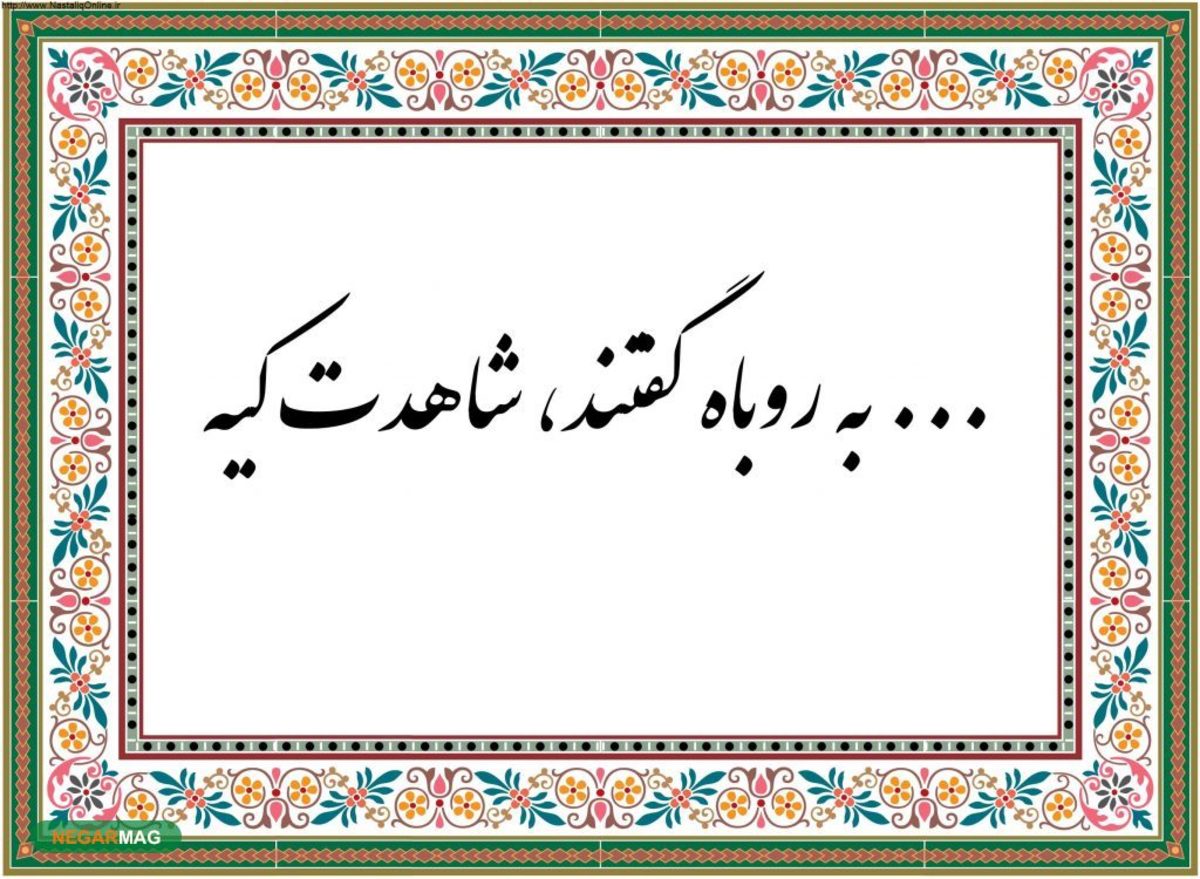 http://www.NastaliqOnline.ir
... به روباه گفتند، شاهدت کیه
NEGARMAG